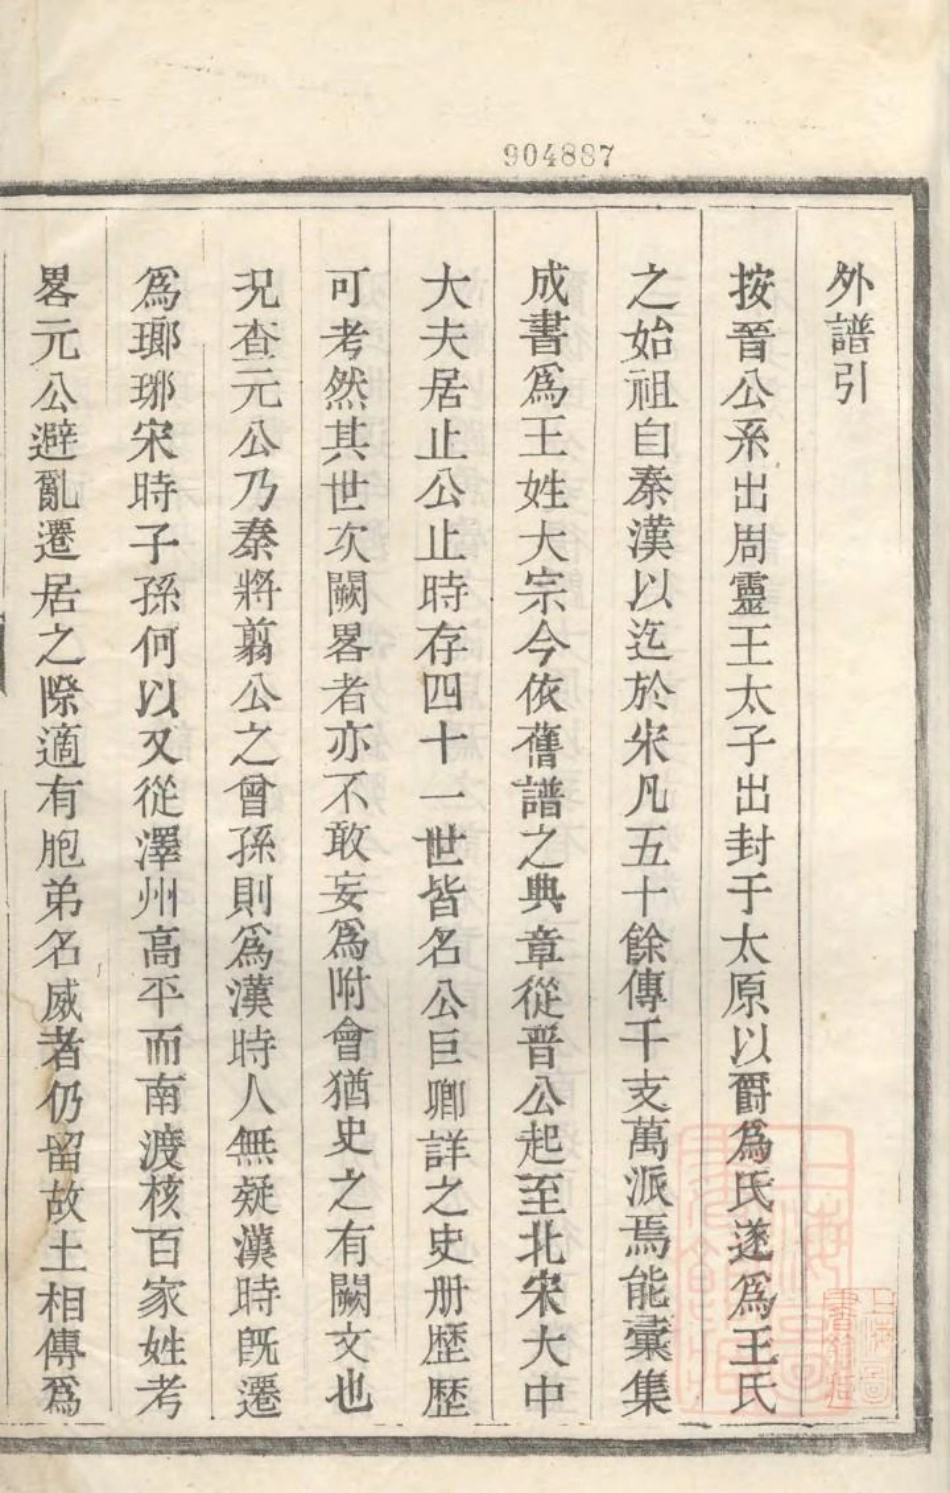 904887
外譜引
按晉公系出周靈王太子出封于太原以爵爲氏遂爲王氏
之始祖自秦漢以迄於宋凡五十餘傳千支萬派焉能彙集
成書爲王姓大宗今依舊譜之典章從晋公起至北宋大中
大夫居止公止時存四十一世皆名公巨卿詳之史册歷歷
可考然其世次闕畧者亦不敢妄爲附會猶史之有闕文也
况查元公乃秦將翦公之曾孫則爲漢時人無疑漢時既遷
爲瑯琊宋時子孫何以又從澤州高平而南渡核百家姓考
畧元公避亂遷居之際適有胞弟名威者仍留故土相傳爲